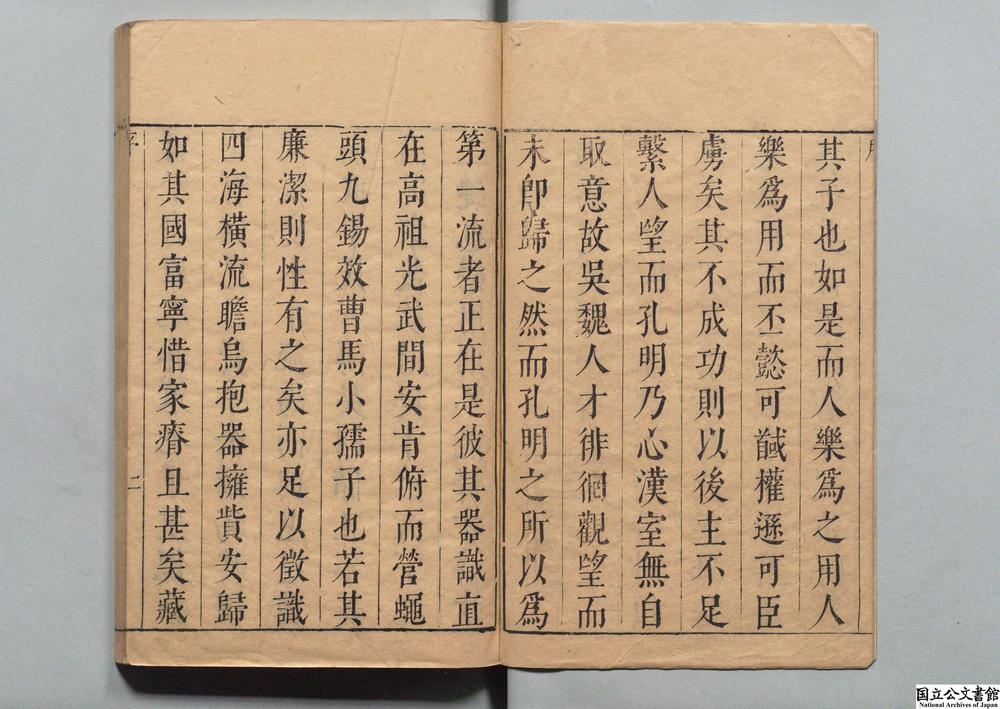 其子也如是而人樂爲之用人
樂爲用而不懿可馘權遜可臣
虜矣其不成功則以後主不足
繫人望而孔明乃心漢室無自
取意故吳魏人才徘徊觀望而
未卽歸之然而孔明之所以爲
第一流者正在是彼其器識直
在高祖光武間安肯俯而營蠅
頭九錫效曹馬小孺子也若其
廉潔則性有之矣亦足以徵識
四海橫流瞻烏抱器擁貲安歸
如其國富寧惜家瘠且甚矣藏
序
二
国立公文書館
National Archives of Japan